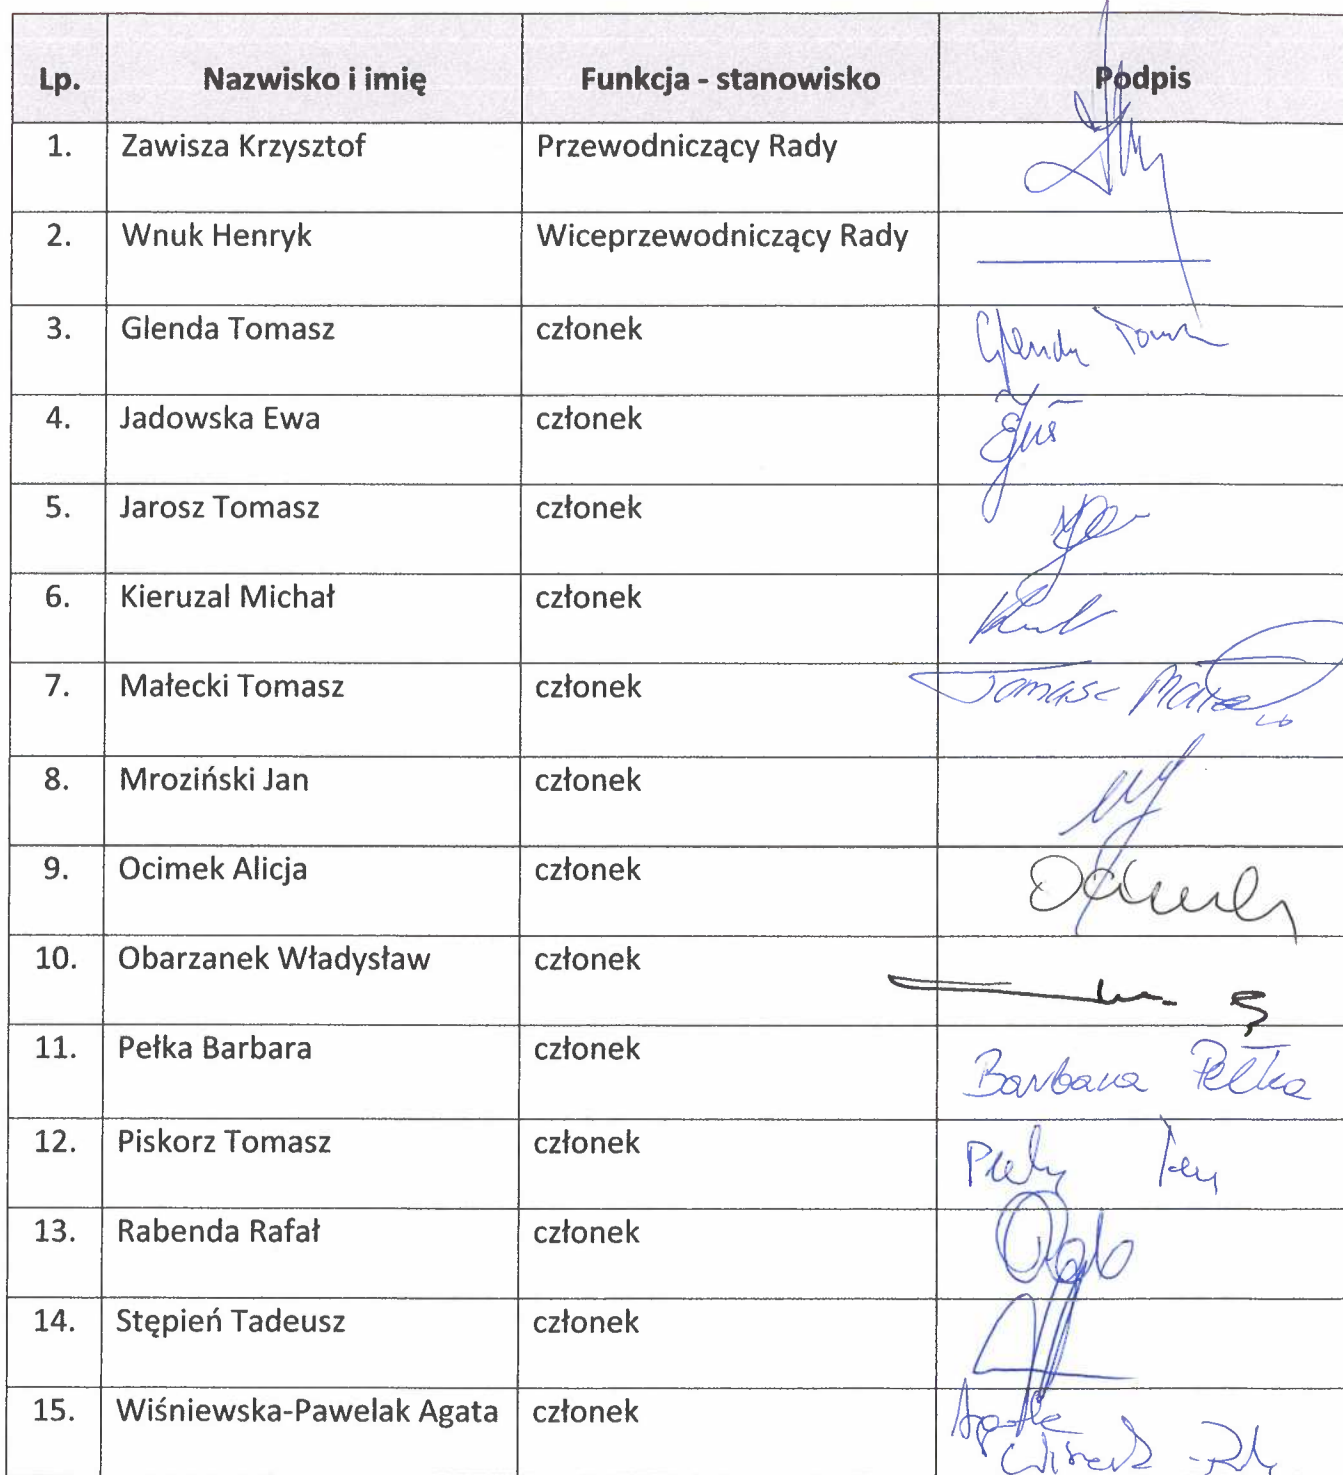 Lp. Nazwisko i imię Funkcja - stanowisko Podpis
1. Zawisza Krzysztof Przewodniczący Rady
2. Wnuk Henryk Wiceprzewodniczący Rady
3. Glenda Tomasz członek Glenda
4. Jadowska Ewa członek
5. Jarosz Tomasz członek
6. Kieruzal Michał członek
7. Małecki Tomasz członek Tomasz
8. Mroziński Jan członek
9. Ocimek Alicja członek
10. Obarzanek Władysław członek
11. Pełka Barbara członek Barbara Pełka
12. Piskorz Tomasz członek
13. Rabenda Rafał członek
14. Stępień Tadeusz członek
15. Wiśniewska-Pawelak Agata członek Agata